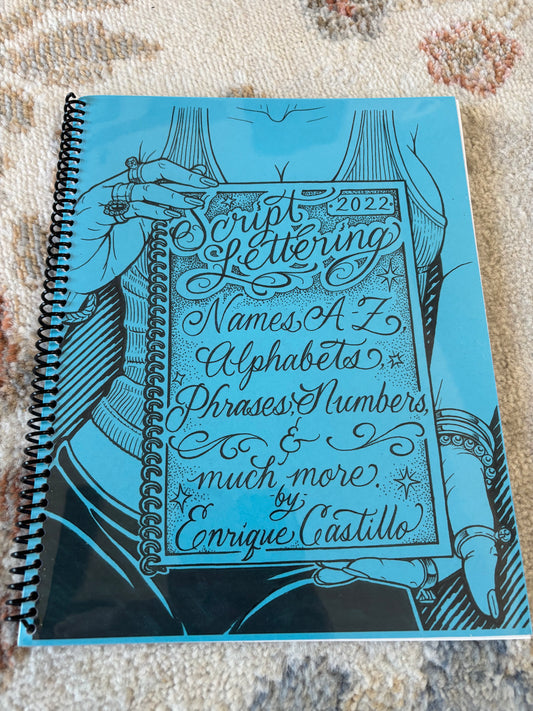 Script
2022
Lettering
Names A-Z,
Alphabets,
Phrases, Numbers,
&
much more.
by
Enrique Castillo